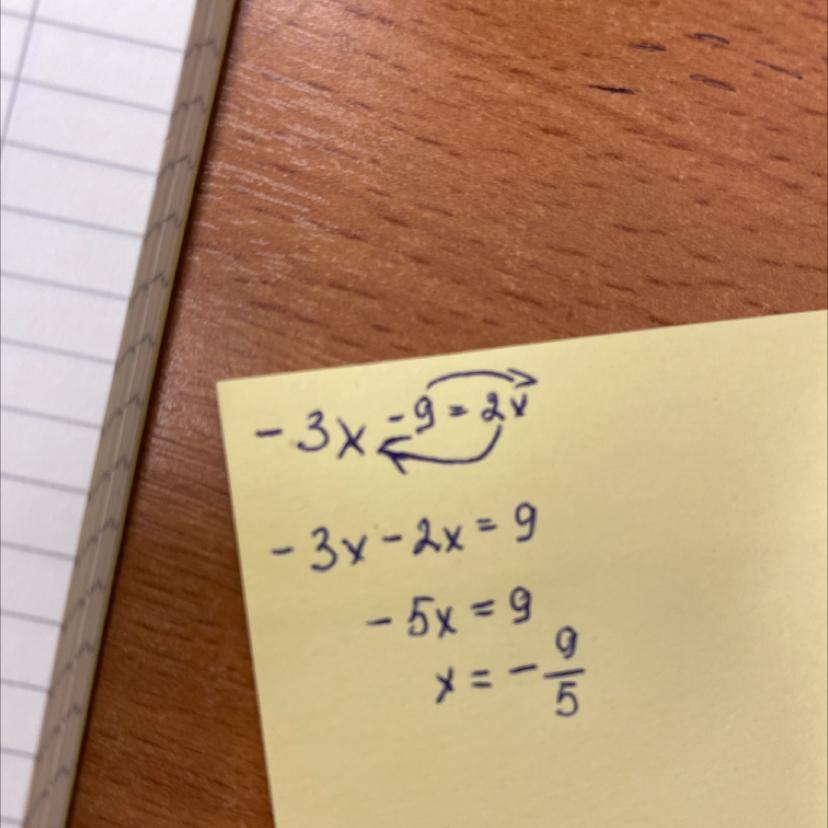 -3x -9 = 2x
-3x - 2x = 9
-5x = 9
x = - 9/5